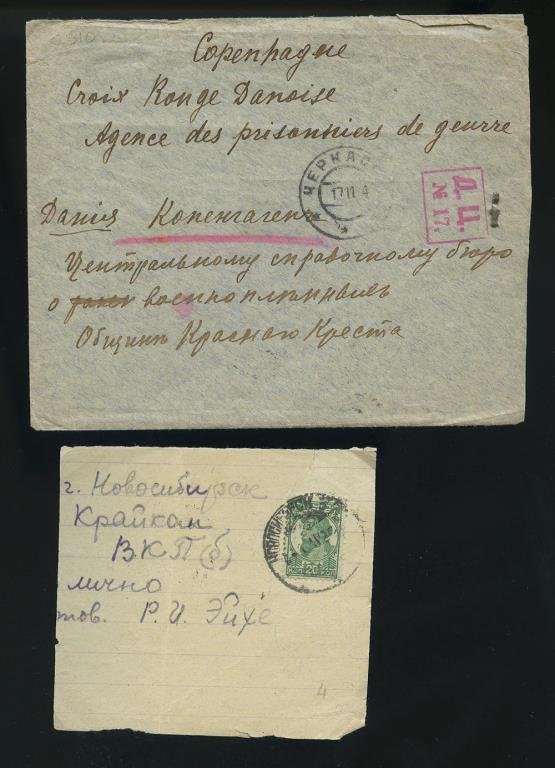 Copenhague
Croix Rouge Danoise
Agence des prisonniers de geurre
ЧЕРКАС
17 11 4
Д.Ц.
№ 17.
Данія Копенгагенъ
Центральному справочному бюро
о военноплѣнныхъ
Общинѣ Краснаго Креста
г. Новосибирск
Крайком
ВКП(б)
лично
тов. Р. И. Эйхе
20
4